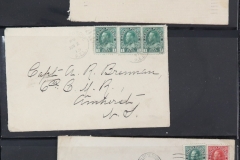 Capt. A. R. Brennan,
6th C. M. R.
Amherst
N. S.